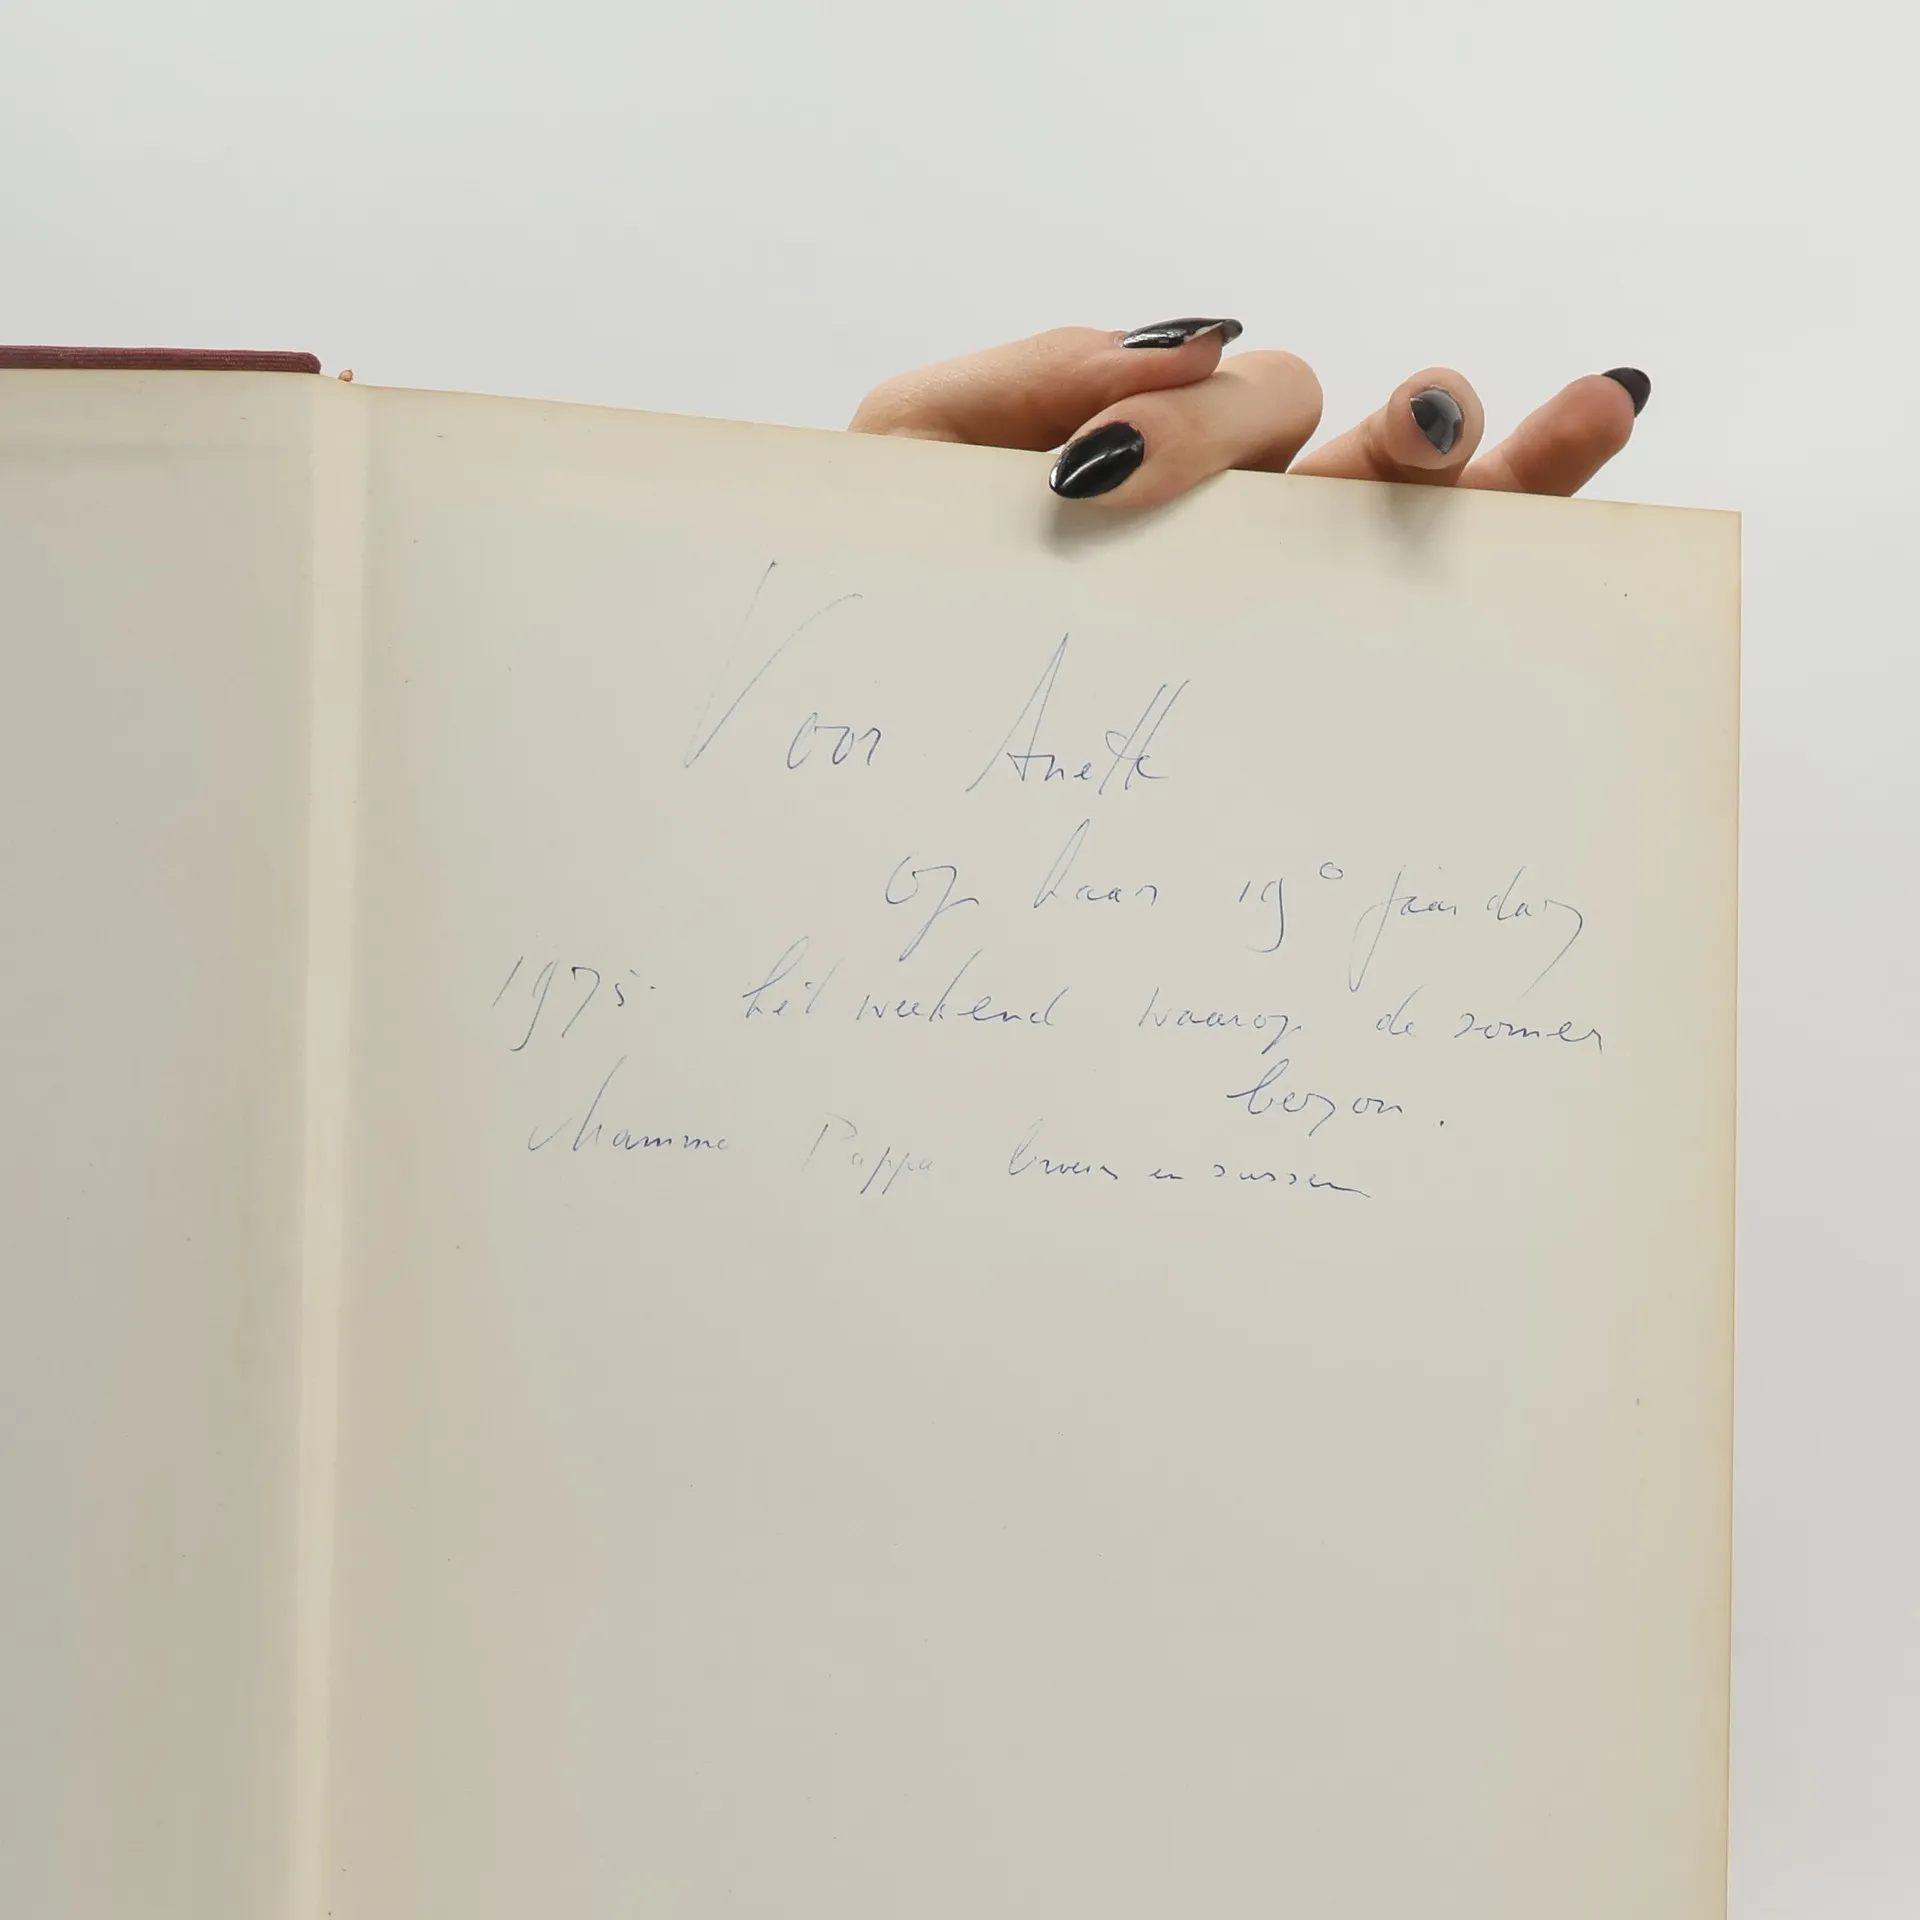 Voor Anette
op haar 19° jaardag
1975. hét weekend waarop de zomer
begon.
Mamma Pappa broers en zussen